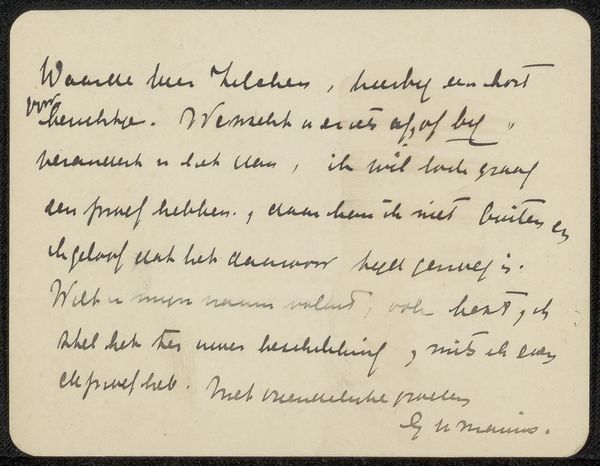 Waarde heer Zilcken, hierby een kort
voor
berichtje. Wenscht u er iets af, of by,
verandert u het dan, ik wil toch graag
een proef hebben, daar kan ik niet buiten en
ik geloof dat het daarvoor tyd genoeg is.
Wilt u mijn naam voluit, ook best, ik
stel het ter uwer beschikking, mits ik even
de proef heb. Met vriendelijke groeten
G H Marius.